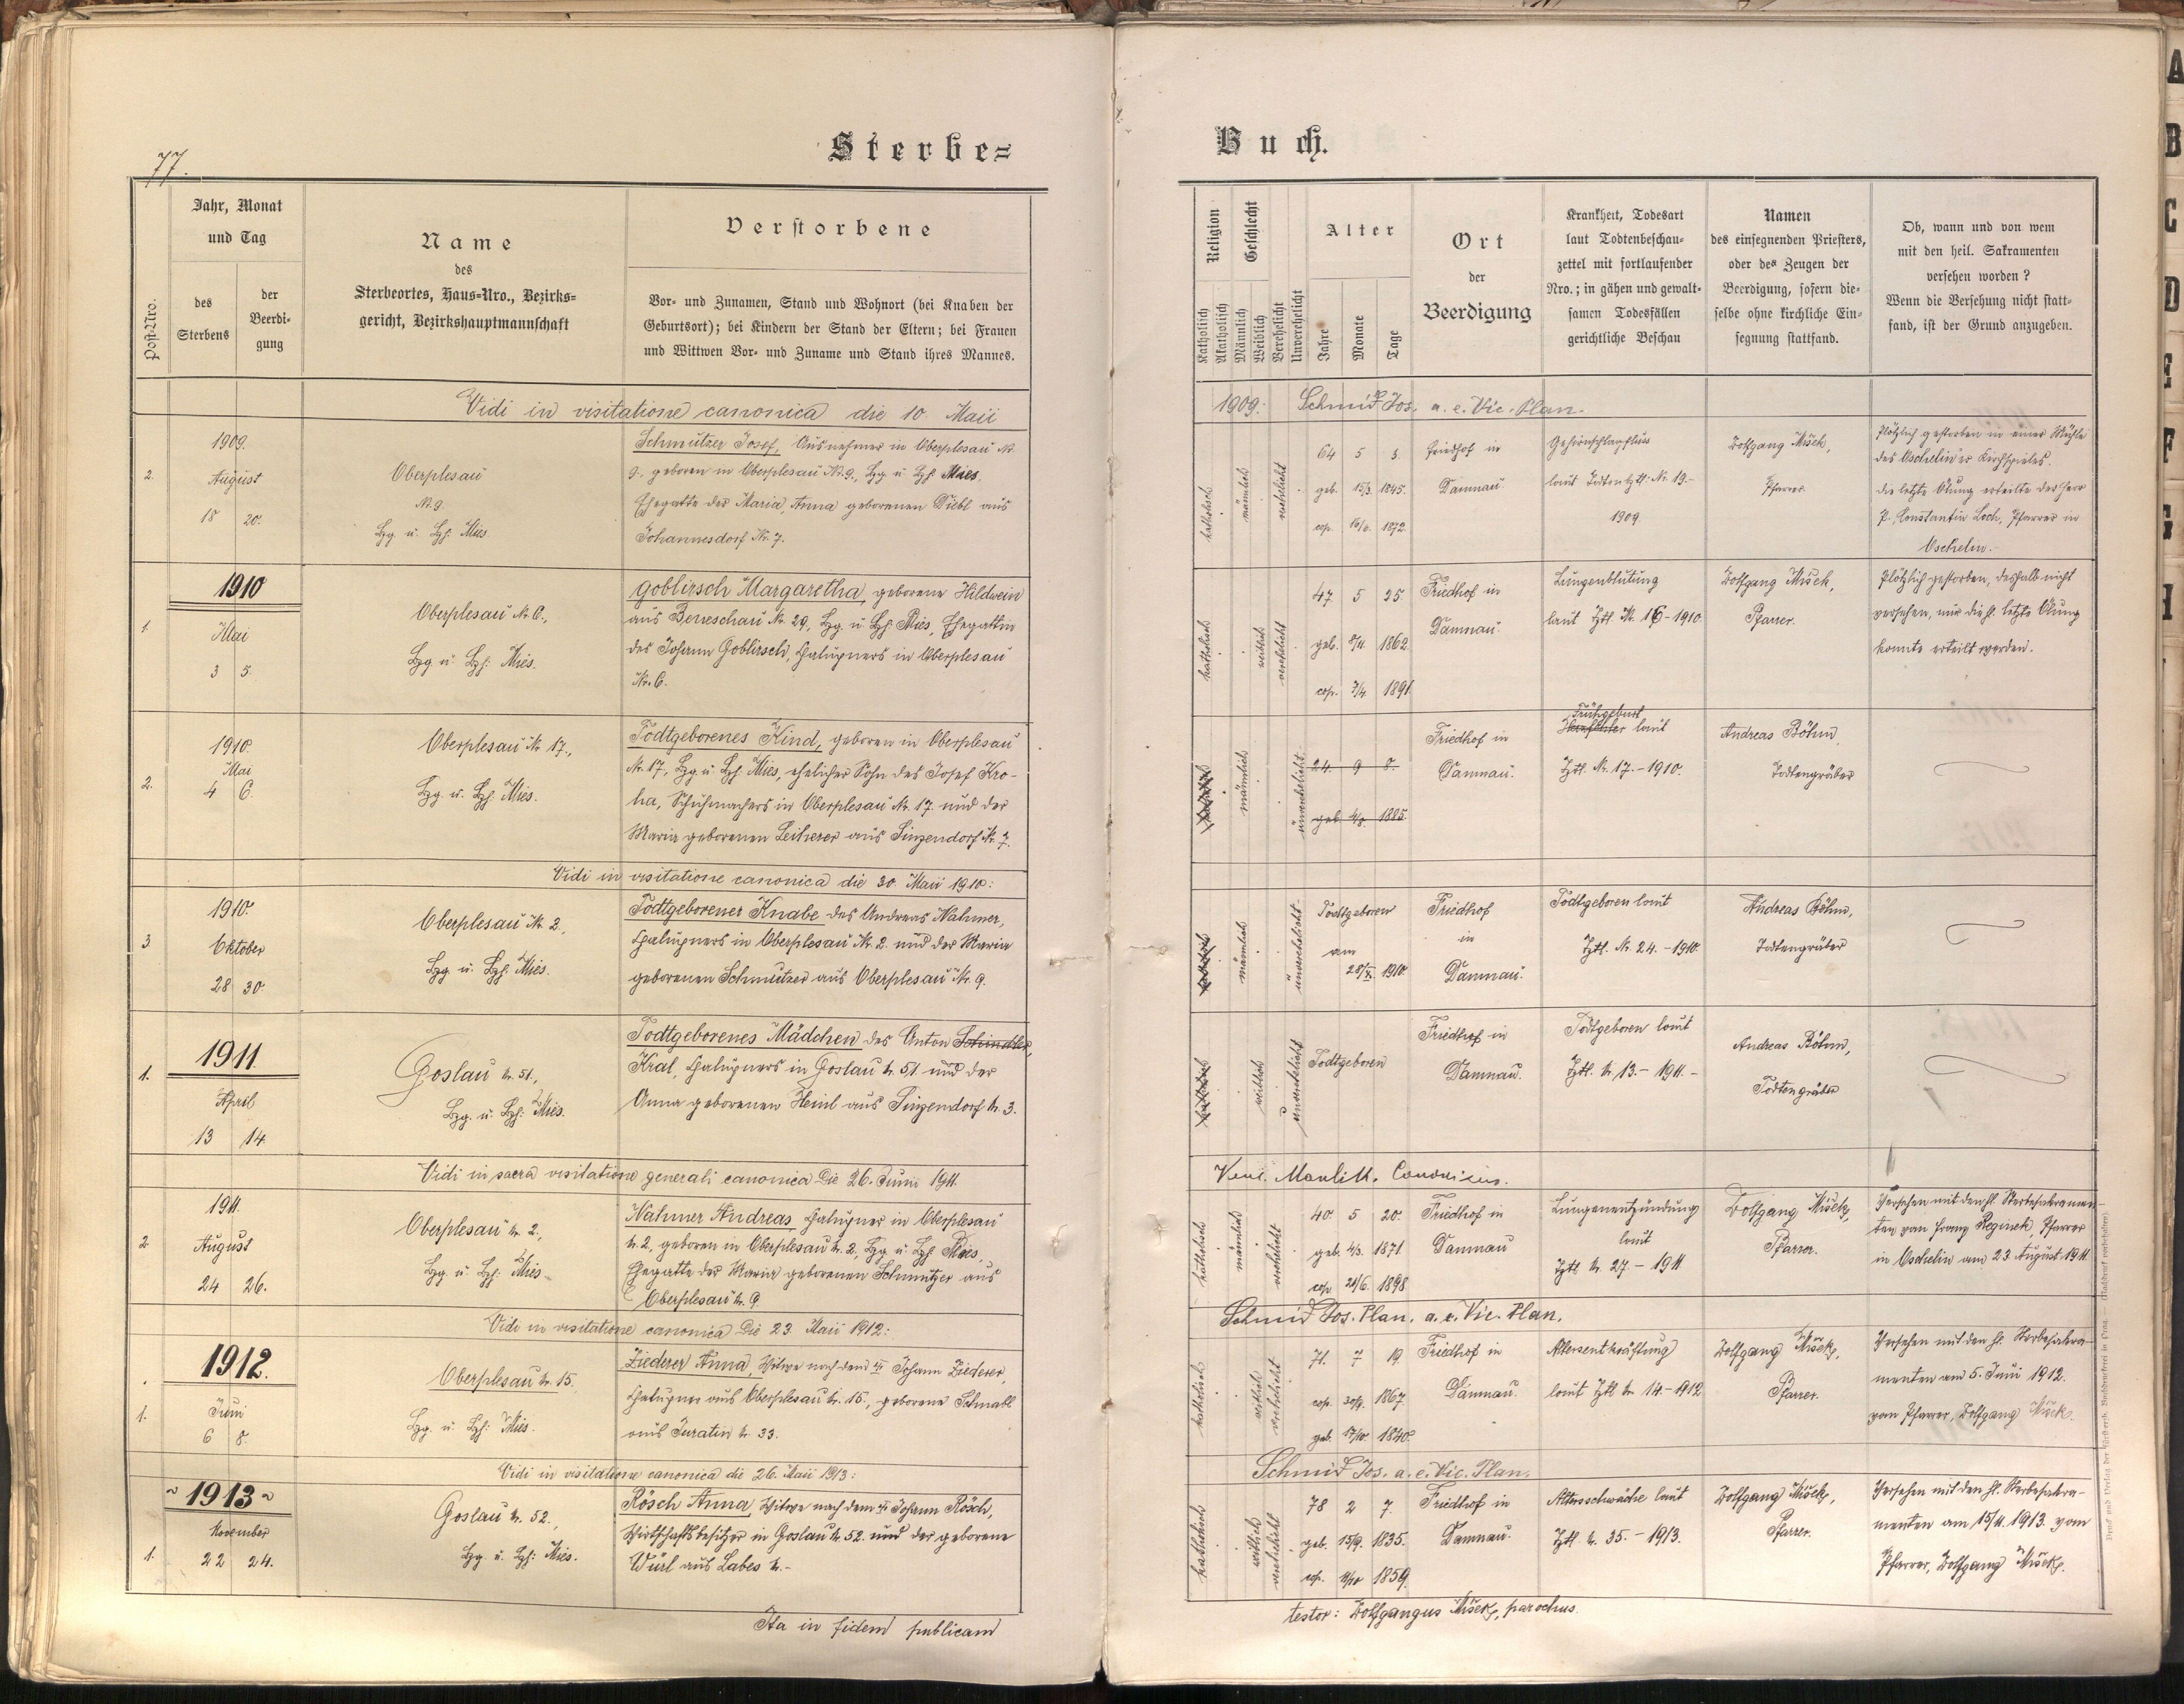 77.
Sterbe=
Post-Nro.
Jahr, Monat
und Tag
des
Sterbens
der
Beerdi-
gung
Name
des
Sterbeortes, Haus=Nro., Bezirks=
gericht, Bezirkshauptmannschaft
Verstorbene
Vor- und Zunamen, Stand und Wohnort (bei Knaben der
Geburtsort); bei Kindern der Stand der Eltern; bei Frauen
und Wittwen Vor- und Zuname und Stand ihres Mannes.
Vidi in visitatione canonica die 10. Maii
1909.
2. August
18 20.
Oberplesau
№ 9
Bzg. u. Bzh: Mies.
Schmutzer Josef, Ausnehmer in Oberplesau №
9. geboren in Oberplesau № 9., Bzg. u. Bzh. Mies.
Ehegatte der Maria, Anna geborenen Diebl aus
Johannesdorf Nr. 7.
1910
1. Mai
3 5.
Oberplesau Nr. 6.,
Bzg u. Bzh: Mies.
Goblirsch Margaretha, geborene Hildwein
aus Beneschau Nr. 29, Bzg. u. Bzh. Mies, Ehegattin
des Johann Goblirsch, Chalupners in Oberplesau
Nr. 6.
1910.
Mai
2. 4 6.
Oberplesau Nr. 17.,
Bzg. u. Bzh. Mies.
Todtgeborenes Kind, geboren in Oberplesau
Nr. 17, Bzg. u. Bzh. Mies, ehelicher Sohn des Josef Kro-
ha, Schuhmachers in Oberplesau Nr. 17 und der
Maria geborenen Leiherer aus Sinzendorf Nr. 7.
Vidi in visitatione canonica die 30. Maii 1910:
1910.
3 Oktober
28 30.
Oberplesau Nr. 2.,
Bzg. u. Bzh. Mies.
Todtgeborener Knabe des Andreas Nahmer,
Chalupners in Oberplesau Nr. 2. und der Maria
geborenen Schmutzer aus Oberplesau Nr. 9.
1911.
1. April
13 14.
Goslau N. 51.,
Bzg. u. Bzh: Mies.
Todtgeborenes Mädchen des Anton Schindler,
Kral, Chalupners in Goslau N. 51. und der
Anna geborenen Heinl aus Sinzendorf N. 3.
Vidi in sacra visitatione generali canonica Die 26. Junii 1911.
1911.
2 August
24 26.
Oberplesau N. 2.,
Bzg. u. Bzh: Mies.
Nahmer Andreas, Chalupner in Oberplesau
N. 2., geboren in Oberplesau N. 2., Bzg. u. Bzh. Mies,
Ehegatte der Maria geborenen Schmutzer aus
Oberplesau N. 9.
Vidi in visitatione canonica Die 23. Maii 1912:
1912.
1. Juni
6 8.
Oberplesau N. 15.
Bzg. u. Bzh: Mies.
Ziederer Anna, Witwe nach dem Johann Ziederer,
Chalupner aus Oberplesau N. 15., geborene Schnabl
aus Juratin N. 33.
Vidi in visitatione canonica die 26. Maii 1913:
~1913~
November
1. 22 24.
Goslau N. 52.,
Bzg. u. Bzh: Mies.
Rösch Anna, Witwe nach dem Johann Rösch,
Wirtschaftsbesitzer in Goslau N. 52. und der geborene
Würl aus Labes N.-
Ita in fidem publicam
Buch.
Religion
Katholisch
Akatholisch
Geschlecht
Männlich
Weiblich
Verehelicht
Unverehelicht
Alter
Jahre
Monate
Tage
Ort
der
Beerdigung
Krankheit, Todesart
laut Todtenbeschau-
zettel mit fortlaufender
Nro.; in gähen und gewalt-
samen Todesfällen
gerichtliche Beschau
Namen
des einsegnenden Priesters,
oder des Zeugen der
Beerdigung, sofern die-
selbe ohne kirchliche Ein-
segnung stattfand.
Ob, wann und von wem
mit den heil. Sakramenten
versehen worden?
Wenn die Versehung nicht statt-
fand, ist der Grund anzugeben.
1909: Schmid Jos. a. e. Vic. Plan.
katholisch
männlich
verehelicht
64 5 3.
geb. 15/3. 1845.
cop. 1872.
Friedhof in
Damnau
Gehirnschlagfluss
laut Todtenzttl. Nr. 19.-
1909.
Wolfgang Mišek,
Pfarrer.
Plötzlich gestorben in einer Mühle
des Oschelin'er Kirchspieles.
die letzte Ölung erteilte der Herr
P. Constantin Loch, Pfarrer in
Oschelin.-
katholisch
weiblich
verehelicht
47 5 25.
geb. 8/11. 1862.
cop. 7/4. 1891.
Friedhof in
Damnau.
Lungenblutung
laut Zttl. Nr. 16-1910.
Wolfgang Mišek,
Pfarrer.
Plötzlich gestorben, deshalb nicht
versehen, nur die hl. letzte Ölung
konnte erteilt werden.
katholisch
männlich
unverehelicht
24. 9 8.
geb. 1885.
Friedhof in
Damnau.
Frühgeburt
laut
Zttl. Nr. 17.-1910.
Andreas Böhm,
Todtengräber
katholisch
männlich
unverehelicht
Todtgeboren
am
28/X. 1910.
Friedhof
in
Damnau.
Todtgeboren laut
Zttl. Nr. 24.-1910.
Andreas Böhm,
Todtengräber
katholisch
weiblich
unverehelicht
Todtgeboren
Friedhof in
Damnau.
Todtgeboren laut
Zttl. N. 13.-1911.-
Andreas Böhm,
Todtengräber
Canonicus.
katholisch
männlich
verehelicht
40. 5 20.
geb. 4/3. 1871.
cop. 21/6. 1898.
Friedhof in
Damnau
Lungenentzündung
laut
Zttl. N. 27.-1911.
Wolfgang Mišek,
Pfarrer.
Versehen mit den hl. Sterbesakramen-
ten von Franz Reginek, Pfarrer
in Oschelin am 23. August 1911.
Schmid Jos. Plan. a. e. Vic. Plan.
katholisch
weiblich
verehelicht
71. 7 19.
cop. 30/4. 1867.
geb. 17/10. 1840.
Friedhof in
Damnau.
Altersentkräftung
laut Zttl. N. 14.-1912.
Wolfgang Mišek,
Pfarrer.
Versehen mit den hl. Sterbesakra-
menten am 5. Juni 1912.
vom Pfarrer, Wolfgang Mišek.
Schmid Jos. a. e. Vic. Plan.
katholisch
weiblich
verehelicht
78 2 7.
geb. 15/9. 1835.
cop. 11/10 1859.
Friedhof in
Damnau.
Altersschwäche laut
Zttl. N. 35.-1913.
Wolfgang Mišek,
Pfarrer.
Versehen mit den hl. Sterbesakra-
menten am 15/11. 1913. vom
Pfarrer, Wolfgang Mišek.
testor: Wolfgangus Mišek, parochus.
Druck und Verlag der fürsterzb. Buchdruckerei in Prag. — (Nachdruck verboten.)
A
B
C
D
E
F
G
H